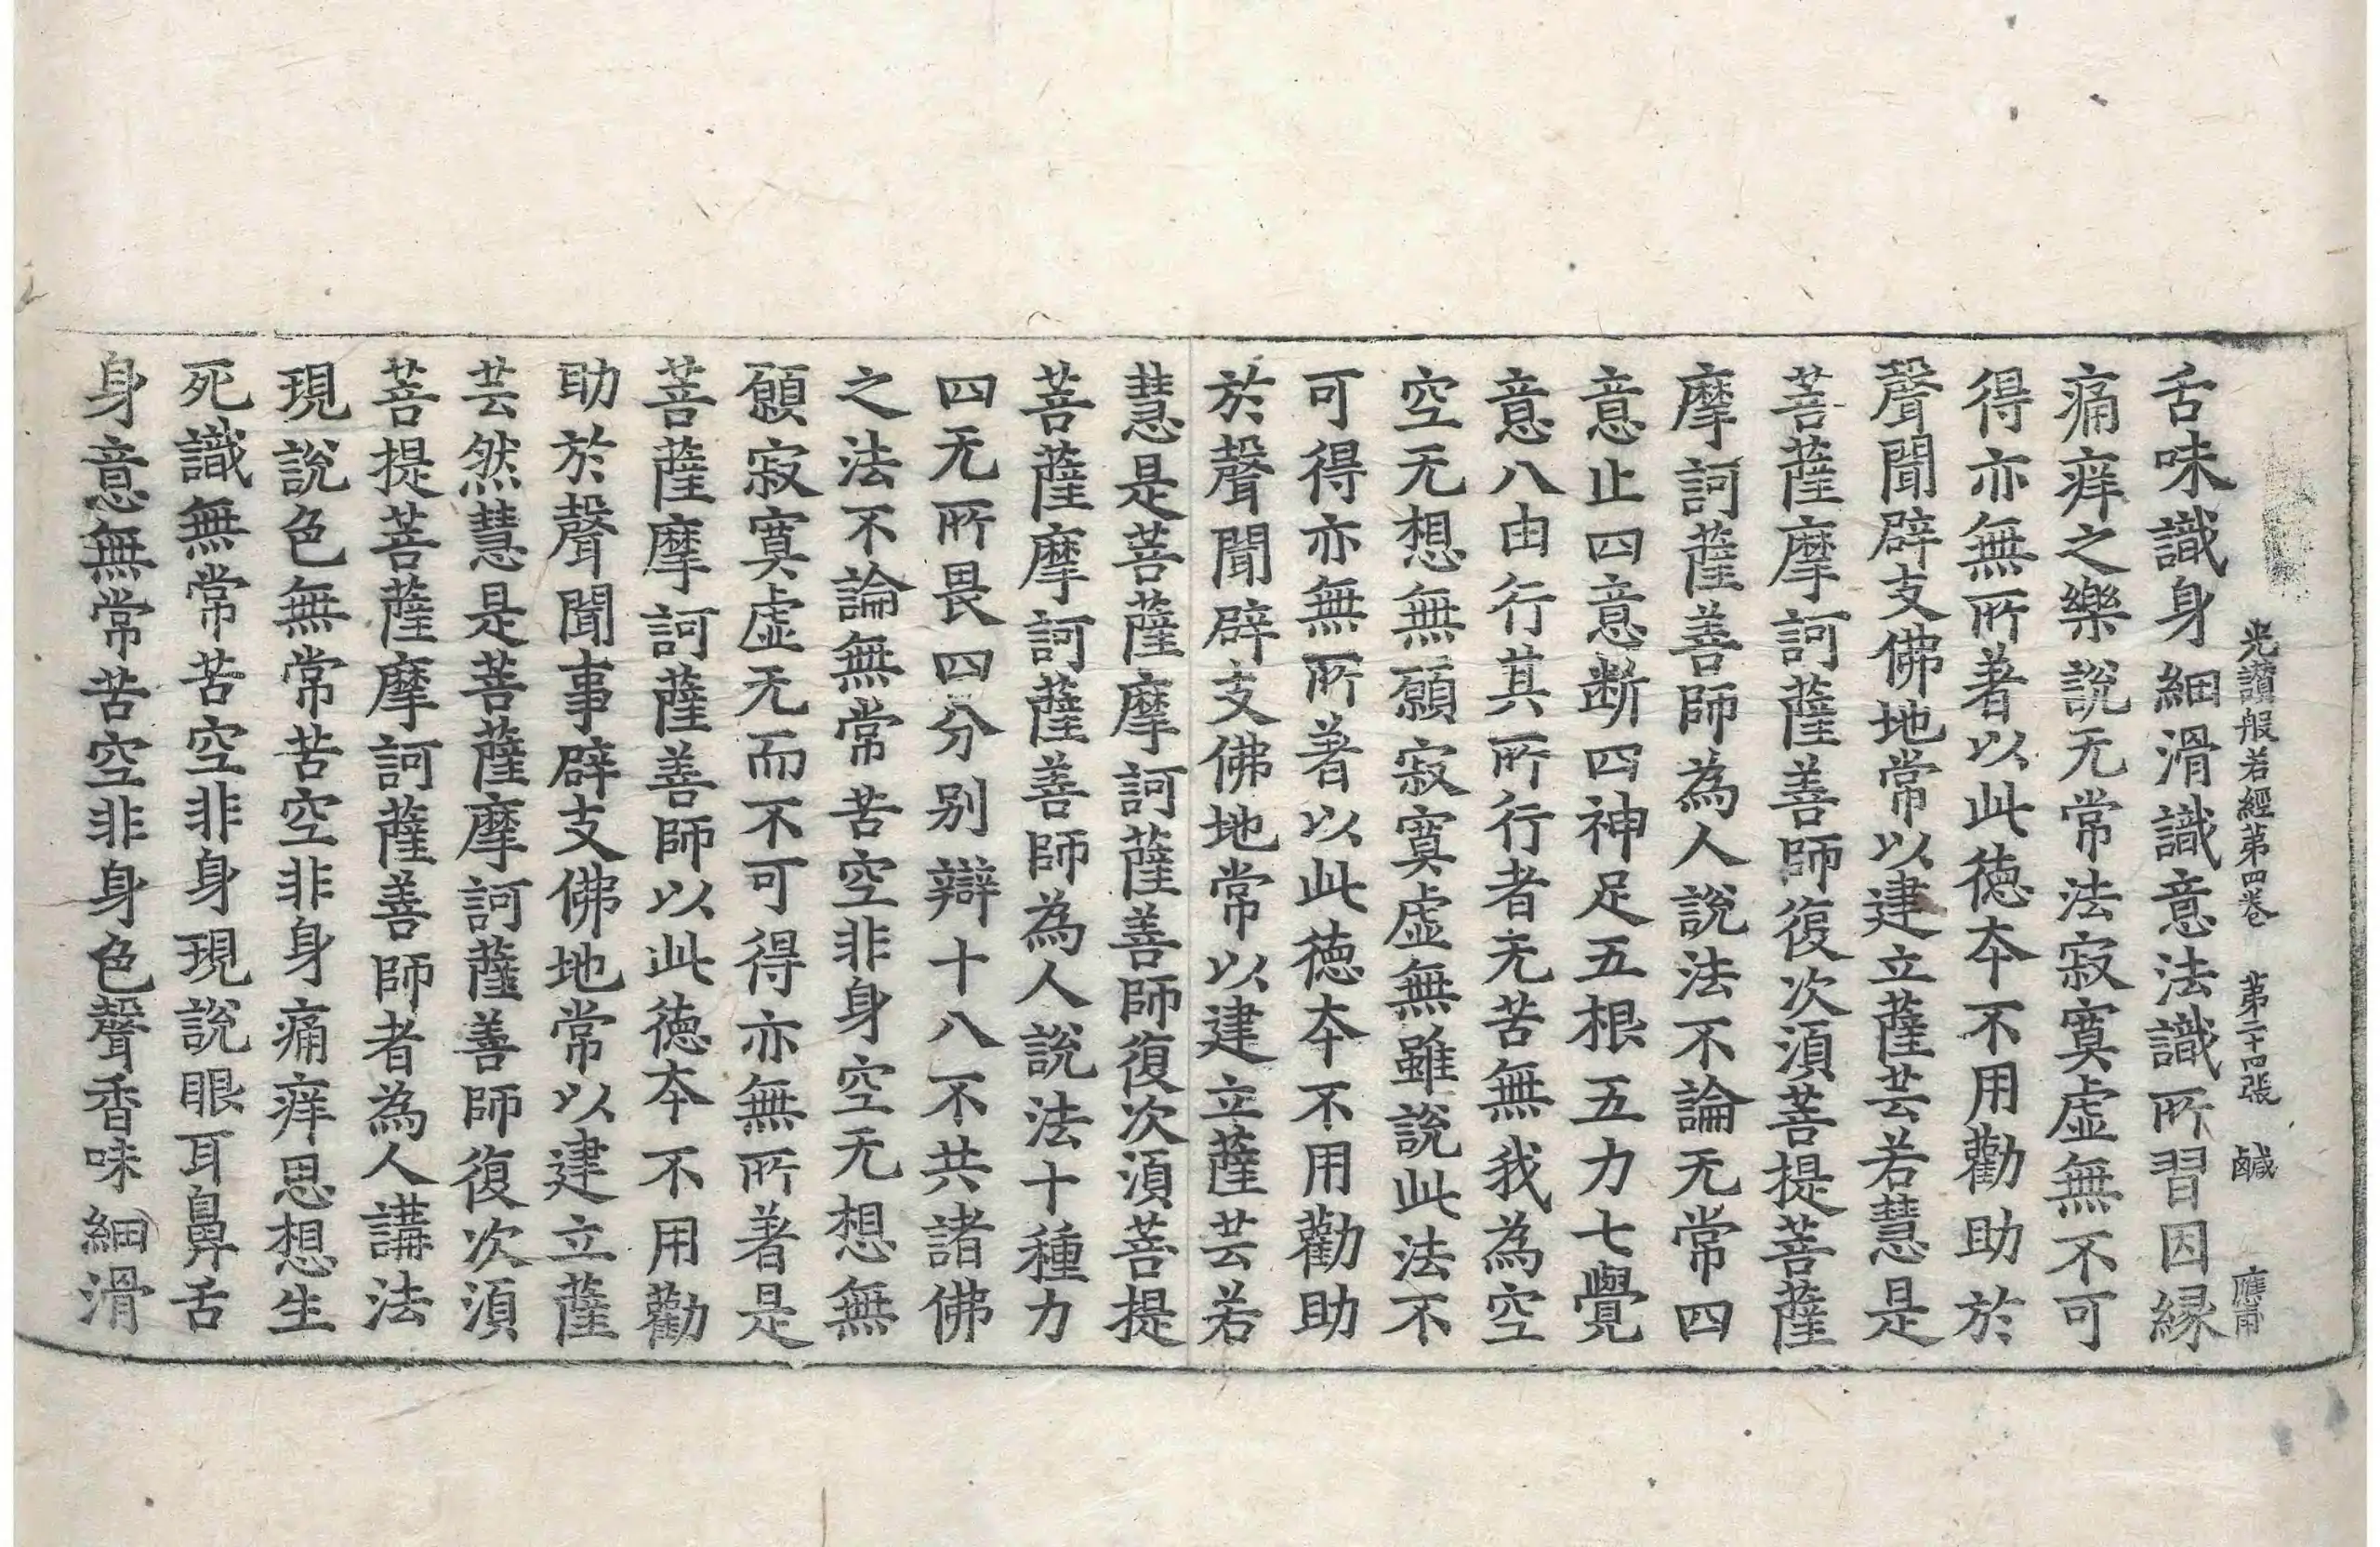 光讚般若經第四卷　第二十四張　鹹　應甫
舌味識身細滑識意法識所習因緣
痛痒之樂說无常法寂寞虛無不可
得亦無所著以此德本不用勸助於
聲聞辟支佛地常以建立薩芸若慧是
菩薩摩訶薩善師復次須菩提菩薩
摩訶薩善師為人說法不論无常四
意止四意断四神足五根五力七覺
意八由行其所行者无苦無我為空
空无想無願寂寞虛無雖說此法不
可得亦無所著以此德本不用勸助
於聲聞辟支佛地常以建立薩芸若
慧是菩薩摩訶薩善師復次須菩提
菩薩摩訶薩善師為人說法十種力
四无所畏四分别辯十八不共諸佛
之法不論無常苦空非身空无想無
願寂寞虛无而不可得亦無所著是
菩薩摩訶薩善師以此德本不用勸
助於聲聞事辟支佛地常以建立薩
芸然慧是菩薩摩訶薩善師復次須
菩提菩薩摩訶薩善師者為人講法
現說色無常苦空非身痛痒思想生
死識無常苦空非身現說眼耳鼻舌
身意無常苦空非身色聲香味細滑